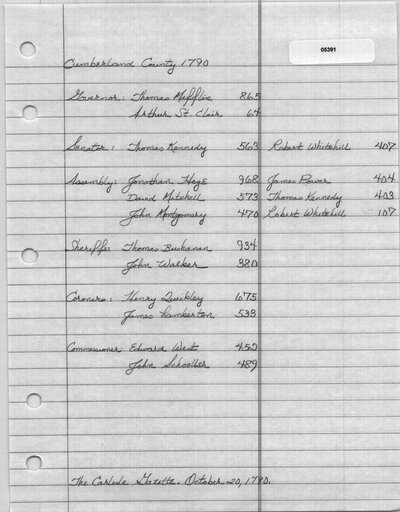 05391
Cumberland County 1790
Governor: Thomas Mifflin 865
Arthur St. Clair 64
Senator: Thomas Kennedy 563 Robert Whitehill 407
Assembly: Jonathan Hoge 968 James Power 404
David Mitchell 573 Thomas Kennedy 403
John Montgomery 470 Robert Whitehill 107
Sheriffs: Thomas Buchanan 934
John Walker 380
Coroners: Henry Quickley 675
James Lamberton 533
Commissioner: Edward West
John 489
The Carlisle Gazette, October 20, 1790.